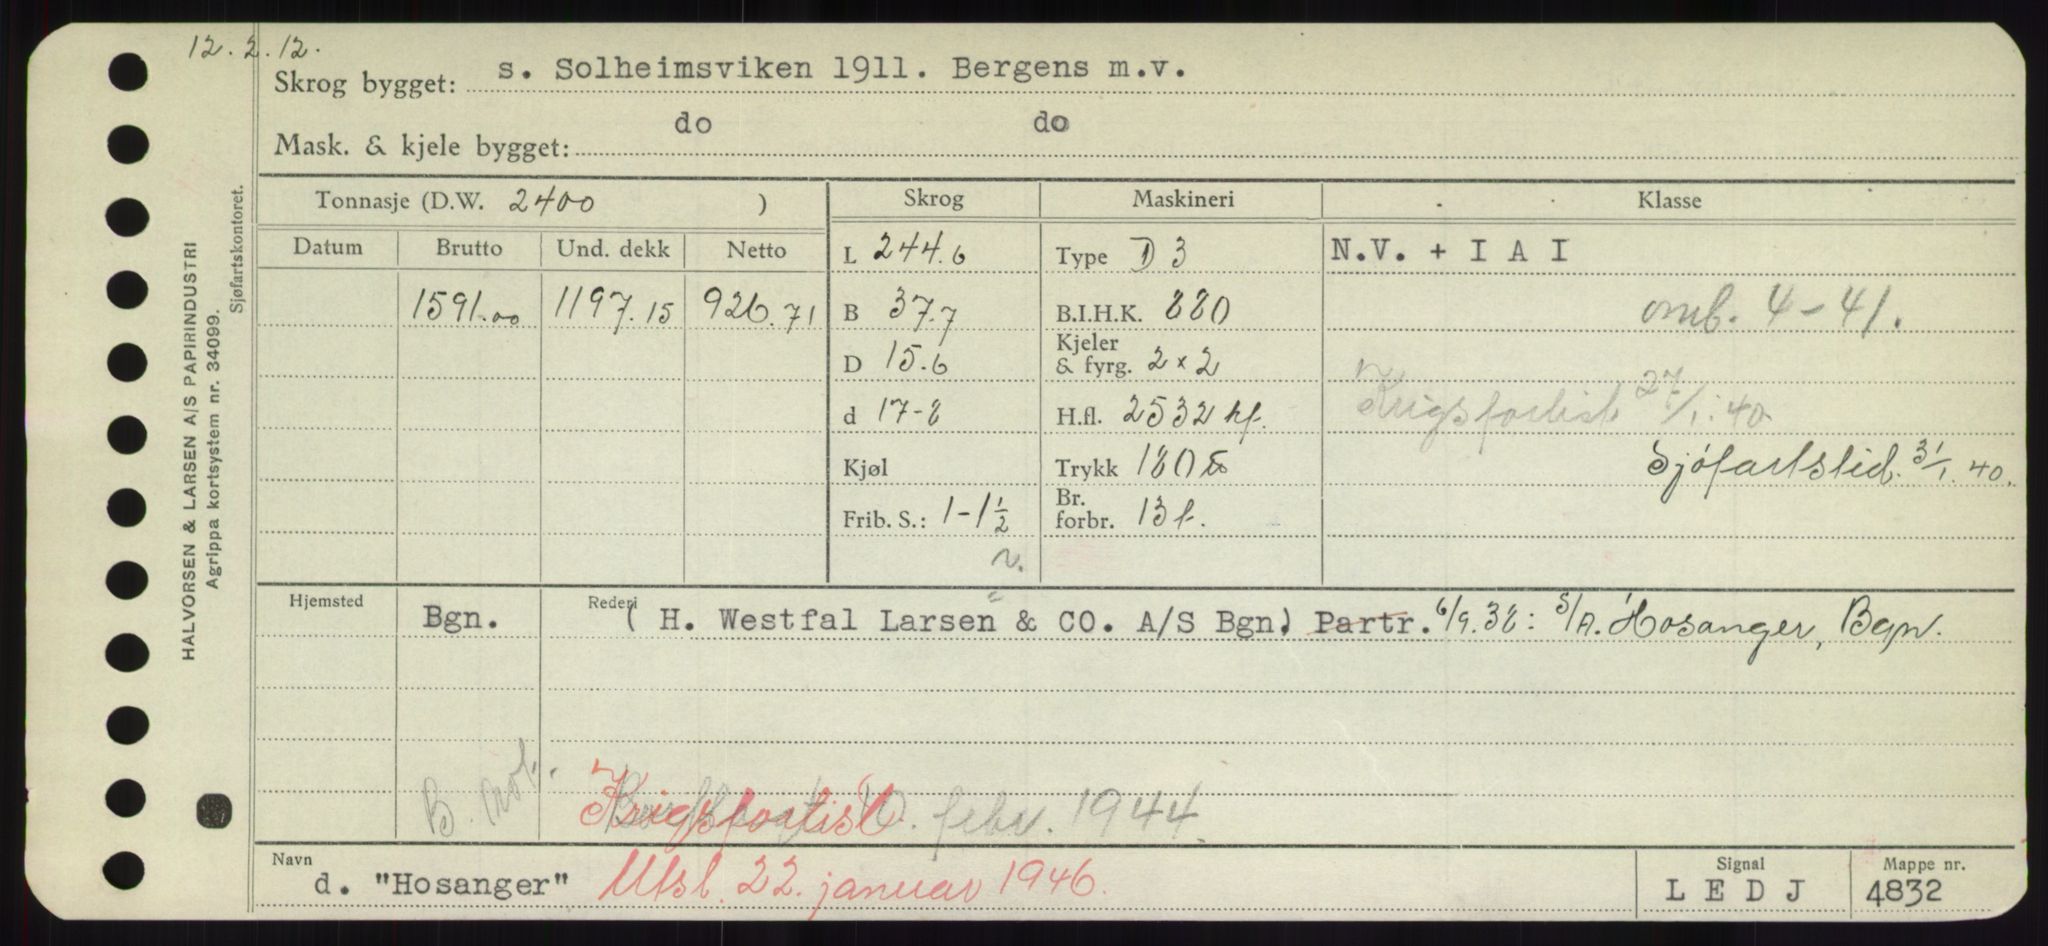 12.2.12.
Skrog bygget: s. Solheimsviken 1911. Bergens m.v.
Mask. & kjele bygget: do do
Tonnasje (D.W. 2400 ) Skrog Maskineri Klasse
Datum Brutto Und. dekk Netto L 244.6 Type D 3 N.V. + I A I
1591.00 1197.15 926.71 B 37.7 B.I.H.K. 880 omb. 4-41.
D 15.6 Kjeler & fyrg. 2 x 2 Krigsforlist 27/1.40
d 17-8 H.fl. 2532 kf.
Kjøl Trykk 180 Sjöfartstid. 31/1.40.
Frib. S.: 1-1½ Br. forbr. 13 t.
v.
Hjemsted Bgn. Rederi ( H. Westfal Larsen & CO. A/S Bgn) Partr. 6/9.38: S/A. Hosanger, Bgn.
B. not. Krigsforlist febr. 1944.
Navn d. "Hosanger" Utsl. 22. januar 1946. Signal L E D J Mappe nr. 4832
HALVORSEN & LARSEN A/S PAPIRINDUSTRI
Agrippa kortsystem nr. 34099.
Sjøfartskontoret.